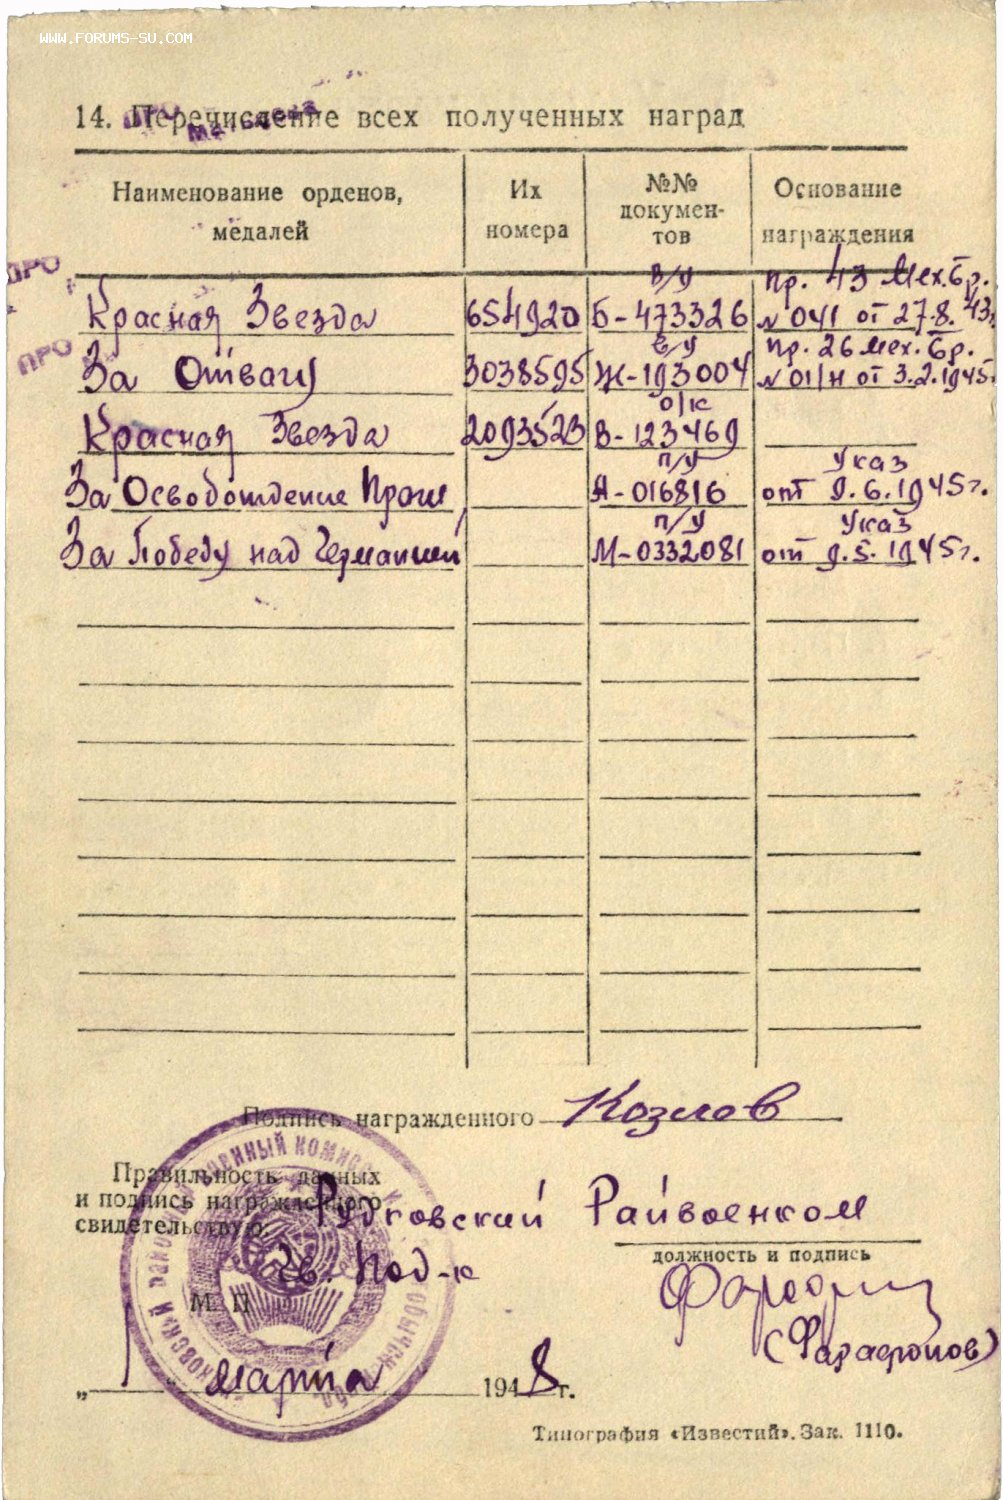 WWW.FORUMS-SU.COM
14. Перечисление всех полученных наград
Наименование орденов, медалей
Их номера
№№ документов
Основание награждения
Красная Звезда 654920 в/у Б-473326 Пр. 43 Мех. бр. №041 от 27.8.43г.
За Отвагу 3038595 в/у Ж-193004 Пр. 26 мех. бр. №01/н от 3.2.1945г.
Красная Звезда 2093523 о/к В-123469
За Освобождение Праги п/у А-016816 Указ от 9.6.1945г.
За Победу над Германией п/у М-0332081 Указ от 9.5.1945г.
Подпись награжденного Козлов
Правильность данных
и подпись награжденного
свидетельствую:
Рудковский Райвоенком
должность и подпись
Гв. Под-к
М. П.
(Фарафонов)
„ 1 марта 1948 г.
Типография «Известий». Зак. 1110.